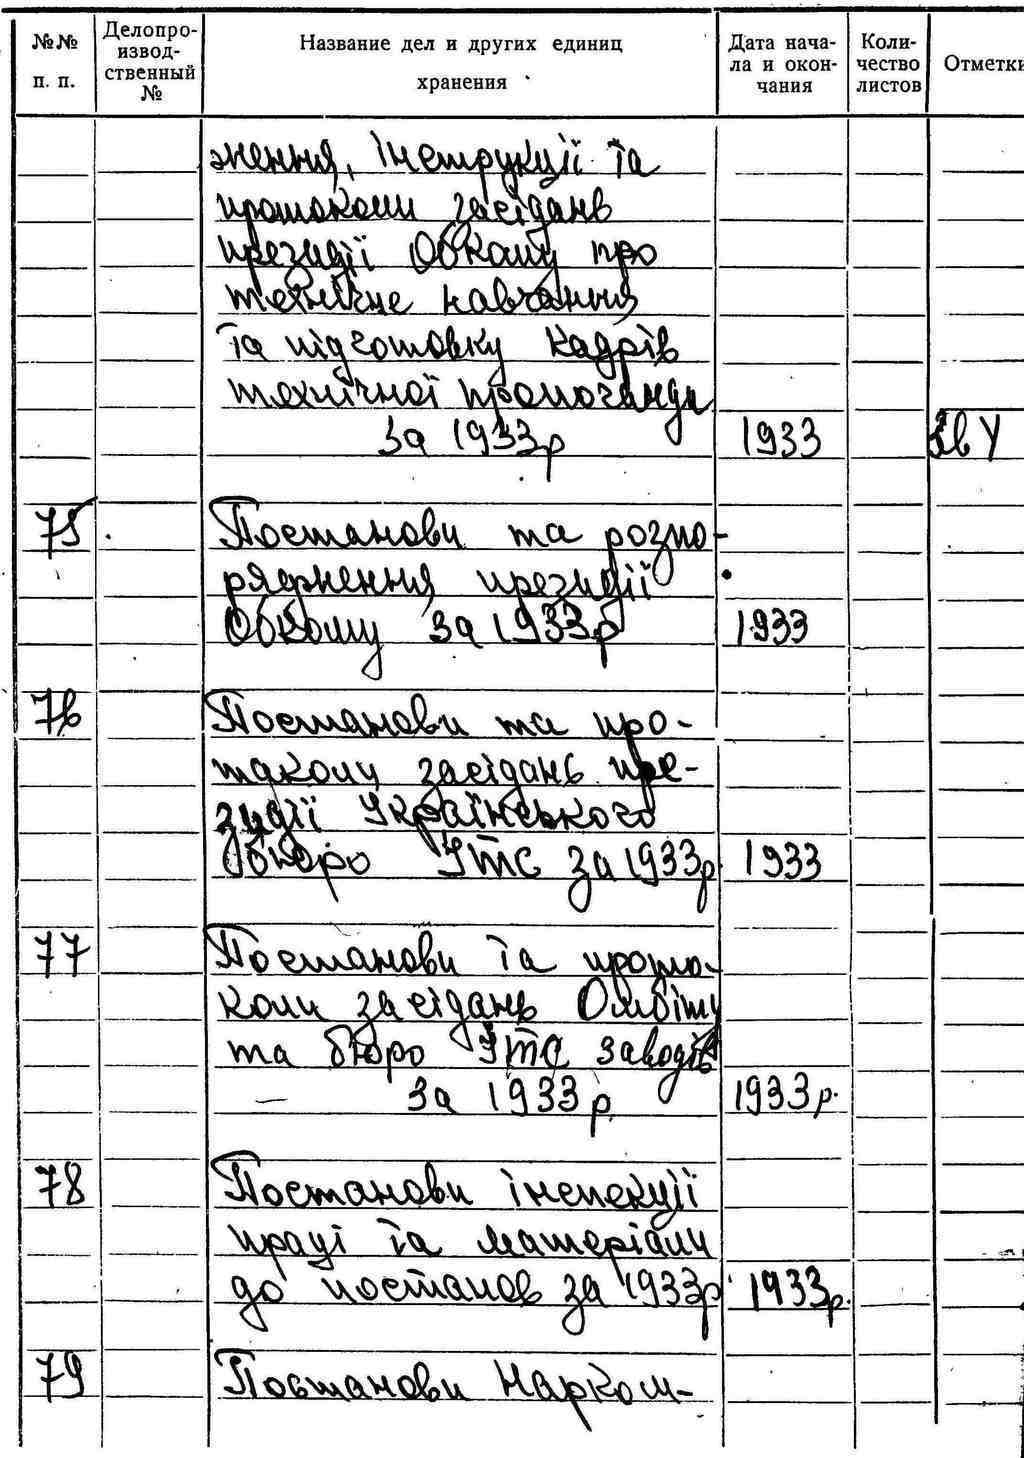 №№ п. п.
Делопроизводственный №
Название дел и других единиц хранения
Дата начала и окончания
Количество листов
Отметки
ження, інструкції та
протоколи засідань
президії Обкому про
технічне навчання
та підготовку кадрів
технічної пропоганди
за 1933р 1933
75 Постанови та розпо-
рядження президії
Обкому за 1933р 1933
76 Постанови та про-
токоли засідань пре-
зидії Українського
бюро ІТС за 1933р 1933
77 Постанови та прото-
коли засідань
та бюро ІТС заводів
за 1933р. 1933р.
78 Постанови інспекції
праці та матеріали
до постанов за 1933р. 1933р.
79 Постанови Нарком-